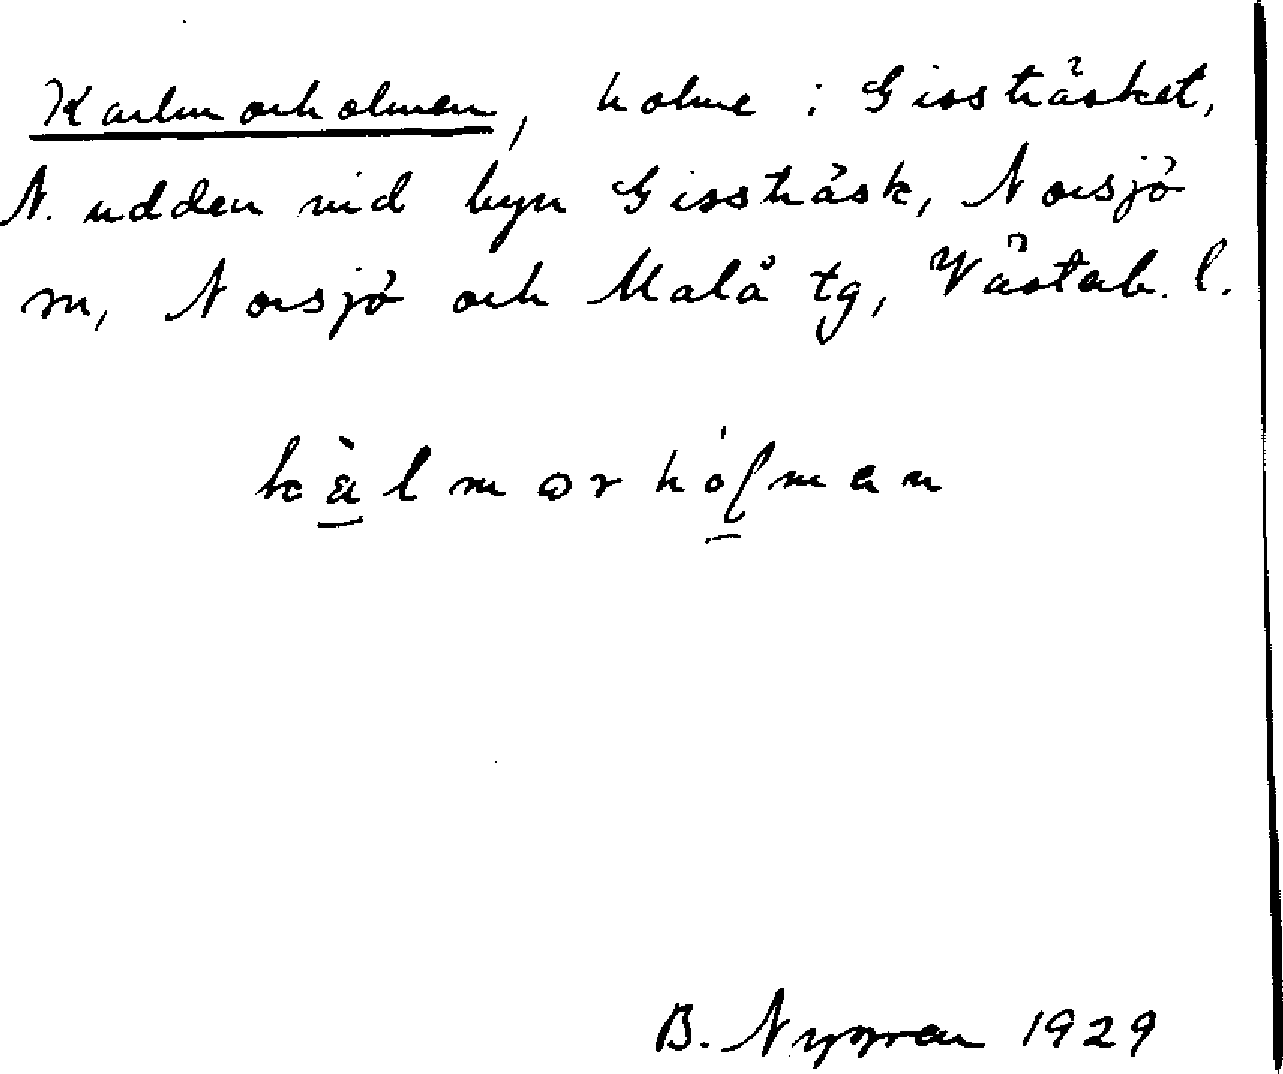 Karlmorholmen, holme i Gissträsket,
N. udden vid byn Gissträsk, Norsjö
sn, Norsjö och Malå tg, Västerb. l.
kàlmorhólmen
B. 1929